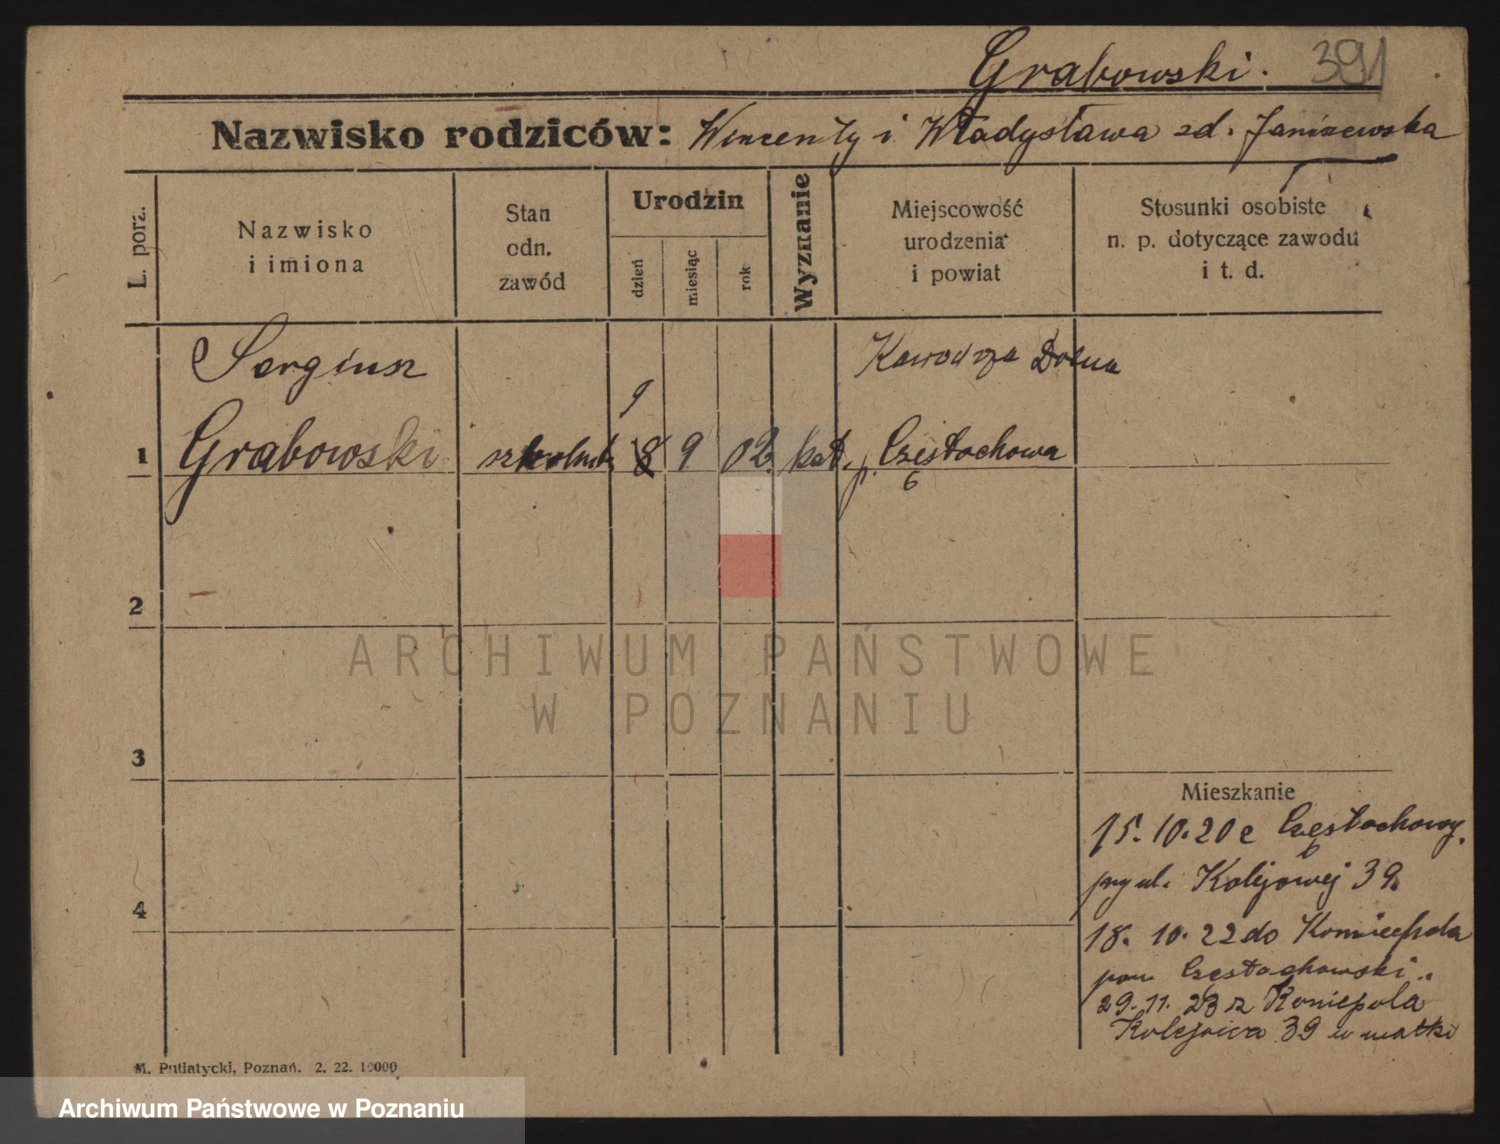 Grabowski. 391
Nazwisko rodziców: Wincenty i Władysława zd. Janiszewska
L. porz.
Nazwisko
i imiona
Stan
odn.
zawód
Urodzin
dzień
miesiąc
rok
Wyznanie
Miejscowość
urodzenia
i powiat
Stosunki osobiste
n. p. dotyczące zawodu
i t. d.
Sergiusz
Kawodrza Dolna
9
1 Grabowski 8 9 02. kat. p. Częstochowa
2
ARCHIWUM PAŃSTWOWE
W POZNANIU
3
Mieszkanie
15. 10. 20 z Częstochowy,
przy ul. Kolejowej 39
4
18. 10. 22 do Koniecpola
pow Częstochowski.
29. 11. 23 z Koniecpola
Kolejowa 39 u matki
M. Putiatycki, Poznań. 2. 22. 10000
Archiwum Państwowe w Poznaniu